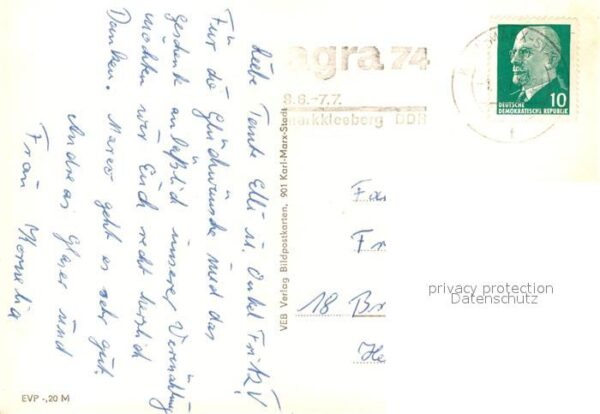 Liebe Tante Elli u. Onkel Fritz!
Für die Glückwünsche und das
Geschenk anläßlich unserer Vermählung
möchten wir Euch recht herzlich
Danken. Marco geht es sehr gut.
Andreas Glaser und
Frau Kornelia
EVP -,20 M
VEB Verlag Bildpostkarten, 901 Karl-Marx-Stadt
agra 74
8.6.-7.7.
markkleeberg DDR
10
DEUTSCHE
DEMOKRATISCHE REPUBLIK
Fa
Fr
18 Br
He
privacy protection
Datenschutz